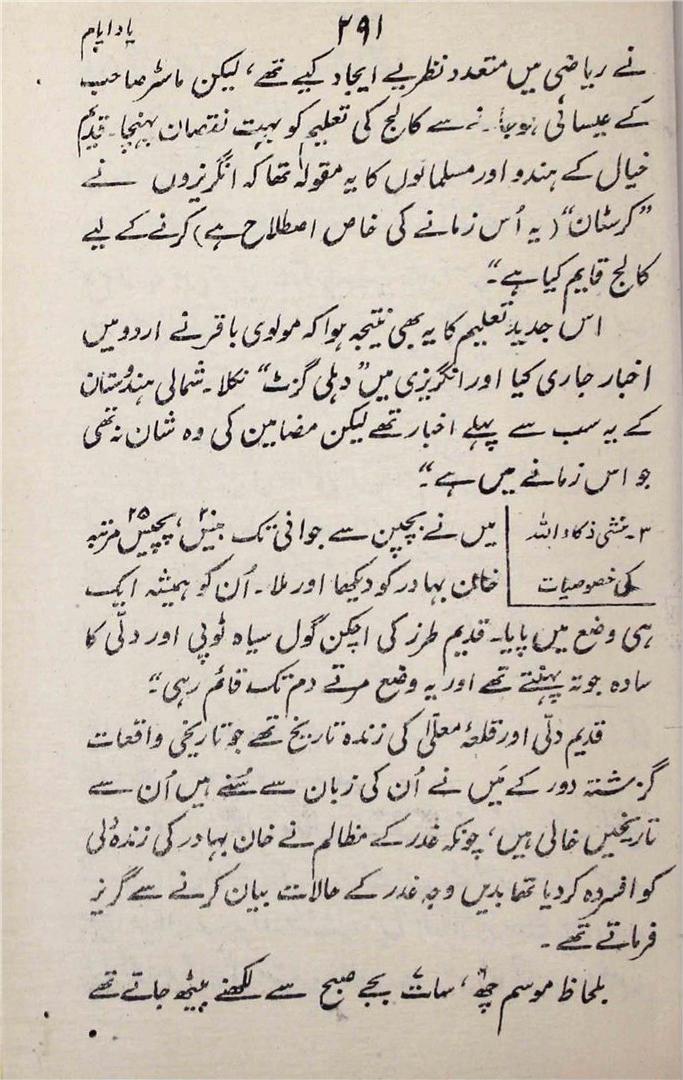 یاد ایام
۲۹۱
نے ریاضی میں متعدد نظریے ایجاد کیے تھے، لیکن ماسٹر صاحب
کے عیسائی ہو جانے سے کالج کی تعلیم کو بہت نقصان پہنچا۔ قدیم
خیال کے ہندو اور مسلمانوں کا یہ مقولہ تھا کہ انگریزوں نے
”کرسٹان“ (یہ اُس زمانے کی خاص اصطلاح ہے) کرنے کے لیے
کالج قایم کیا ہے“
اس جدید تعلیم کا یہ بھی نتیجہ ہوا کہ مولوی باقر نے اردو میں
اخبار جاری کیا اور انگریزی میں ”دہلی گزٹ“ نکلا۔ شمالی ہندوستان
کے یہ سب سے پہلے اخبار تھے لیکن مضامین کی وہ شان نہ تھی
جو اس زمانے میں ہے“
۳۔ منشی ذکاء اللہ
کی خصوصیات
میں نے بچپن سے جوانی تک بیس۲۰، پچیس۲۵ مرتبہ
خان بہادر کو دیکھا اور ملا۔ اُن کو ہمیشہ ایک
ہی وضع میں پایا۔ قدیم طرز کی اچکن گول سیاہ ٹوپی اور دلّی کا
سادہ جوتہ پہنتے تھے اور یہ وضع مرتے دم تک قائم رہی“
قدیم دلّی اور قلعۂ معلّیٰ کی زندہ تاریخ تھے جو تاریخی واقعات
گزشتہ دور کے مَیں نے اُن کی زبان سے سُنے ہیں اُن سے
تاریخیں خالی ہیں، چونکہ غدر کے مظالم نے خان بہادر کی زندہ دلی
کو افسردہ کر دیا تھا بدیں وجہ غدر کے حالات بیان کرنے سے گریز
فرماتے تھے۔
بلحاظ موسم چھ۶، سات۷ بجے صبح سے لکھنے بیٹھ جاتے تھے